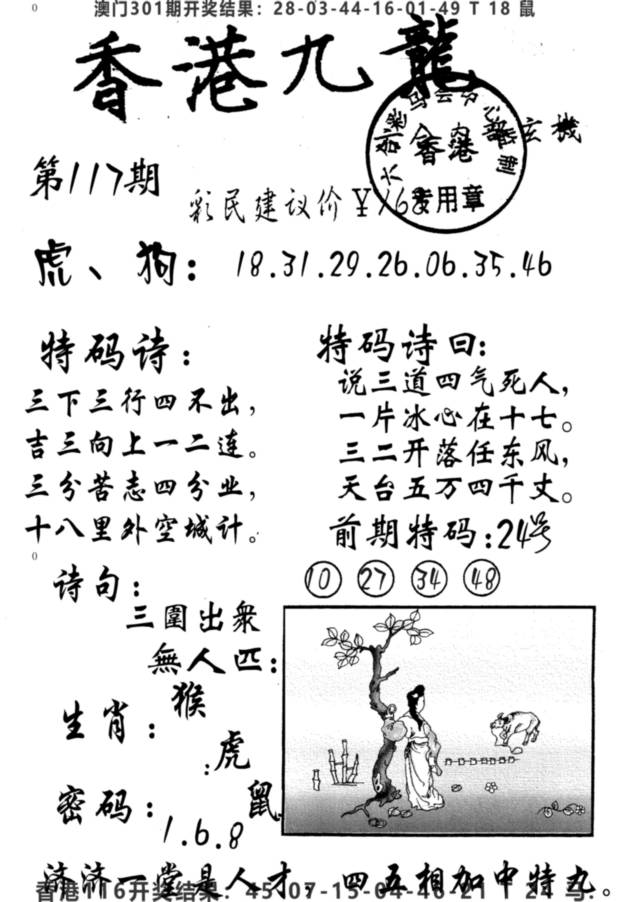 澳门301期开奖结果：28-03-44-16-01-49 T 18 鼠
香港九龍
玄機
香港
专用章
第117期
彩民建议价¥
虎、狗：18.31.29.26.06.35.46
特码诗：
三下三行四不出，
吉三向上一二连。
三分苦志四分业，
十八里外空城计。
特码诗曰：
说三道四气死人，
一片冰心在十七。
三二开落任东风，
天台五万四千丈。
前期特码：24号
10 27 34 48
诗句：
三圍出衆
無人匹：
生肖：猴
：虎
鼠
密码：1.6.8
济济一堂是人才，四五相加中特九。
香港116开奖结果：45-07-15-04-46-21 T 24 马.